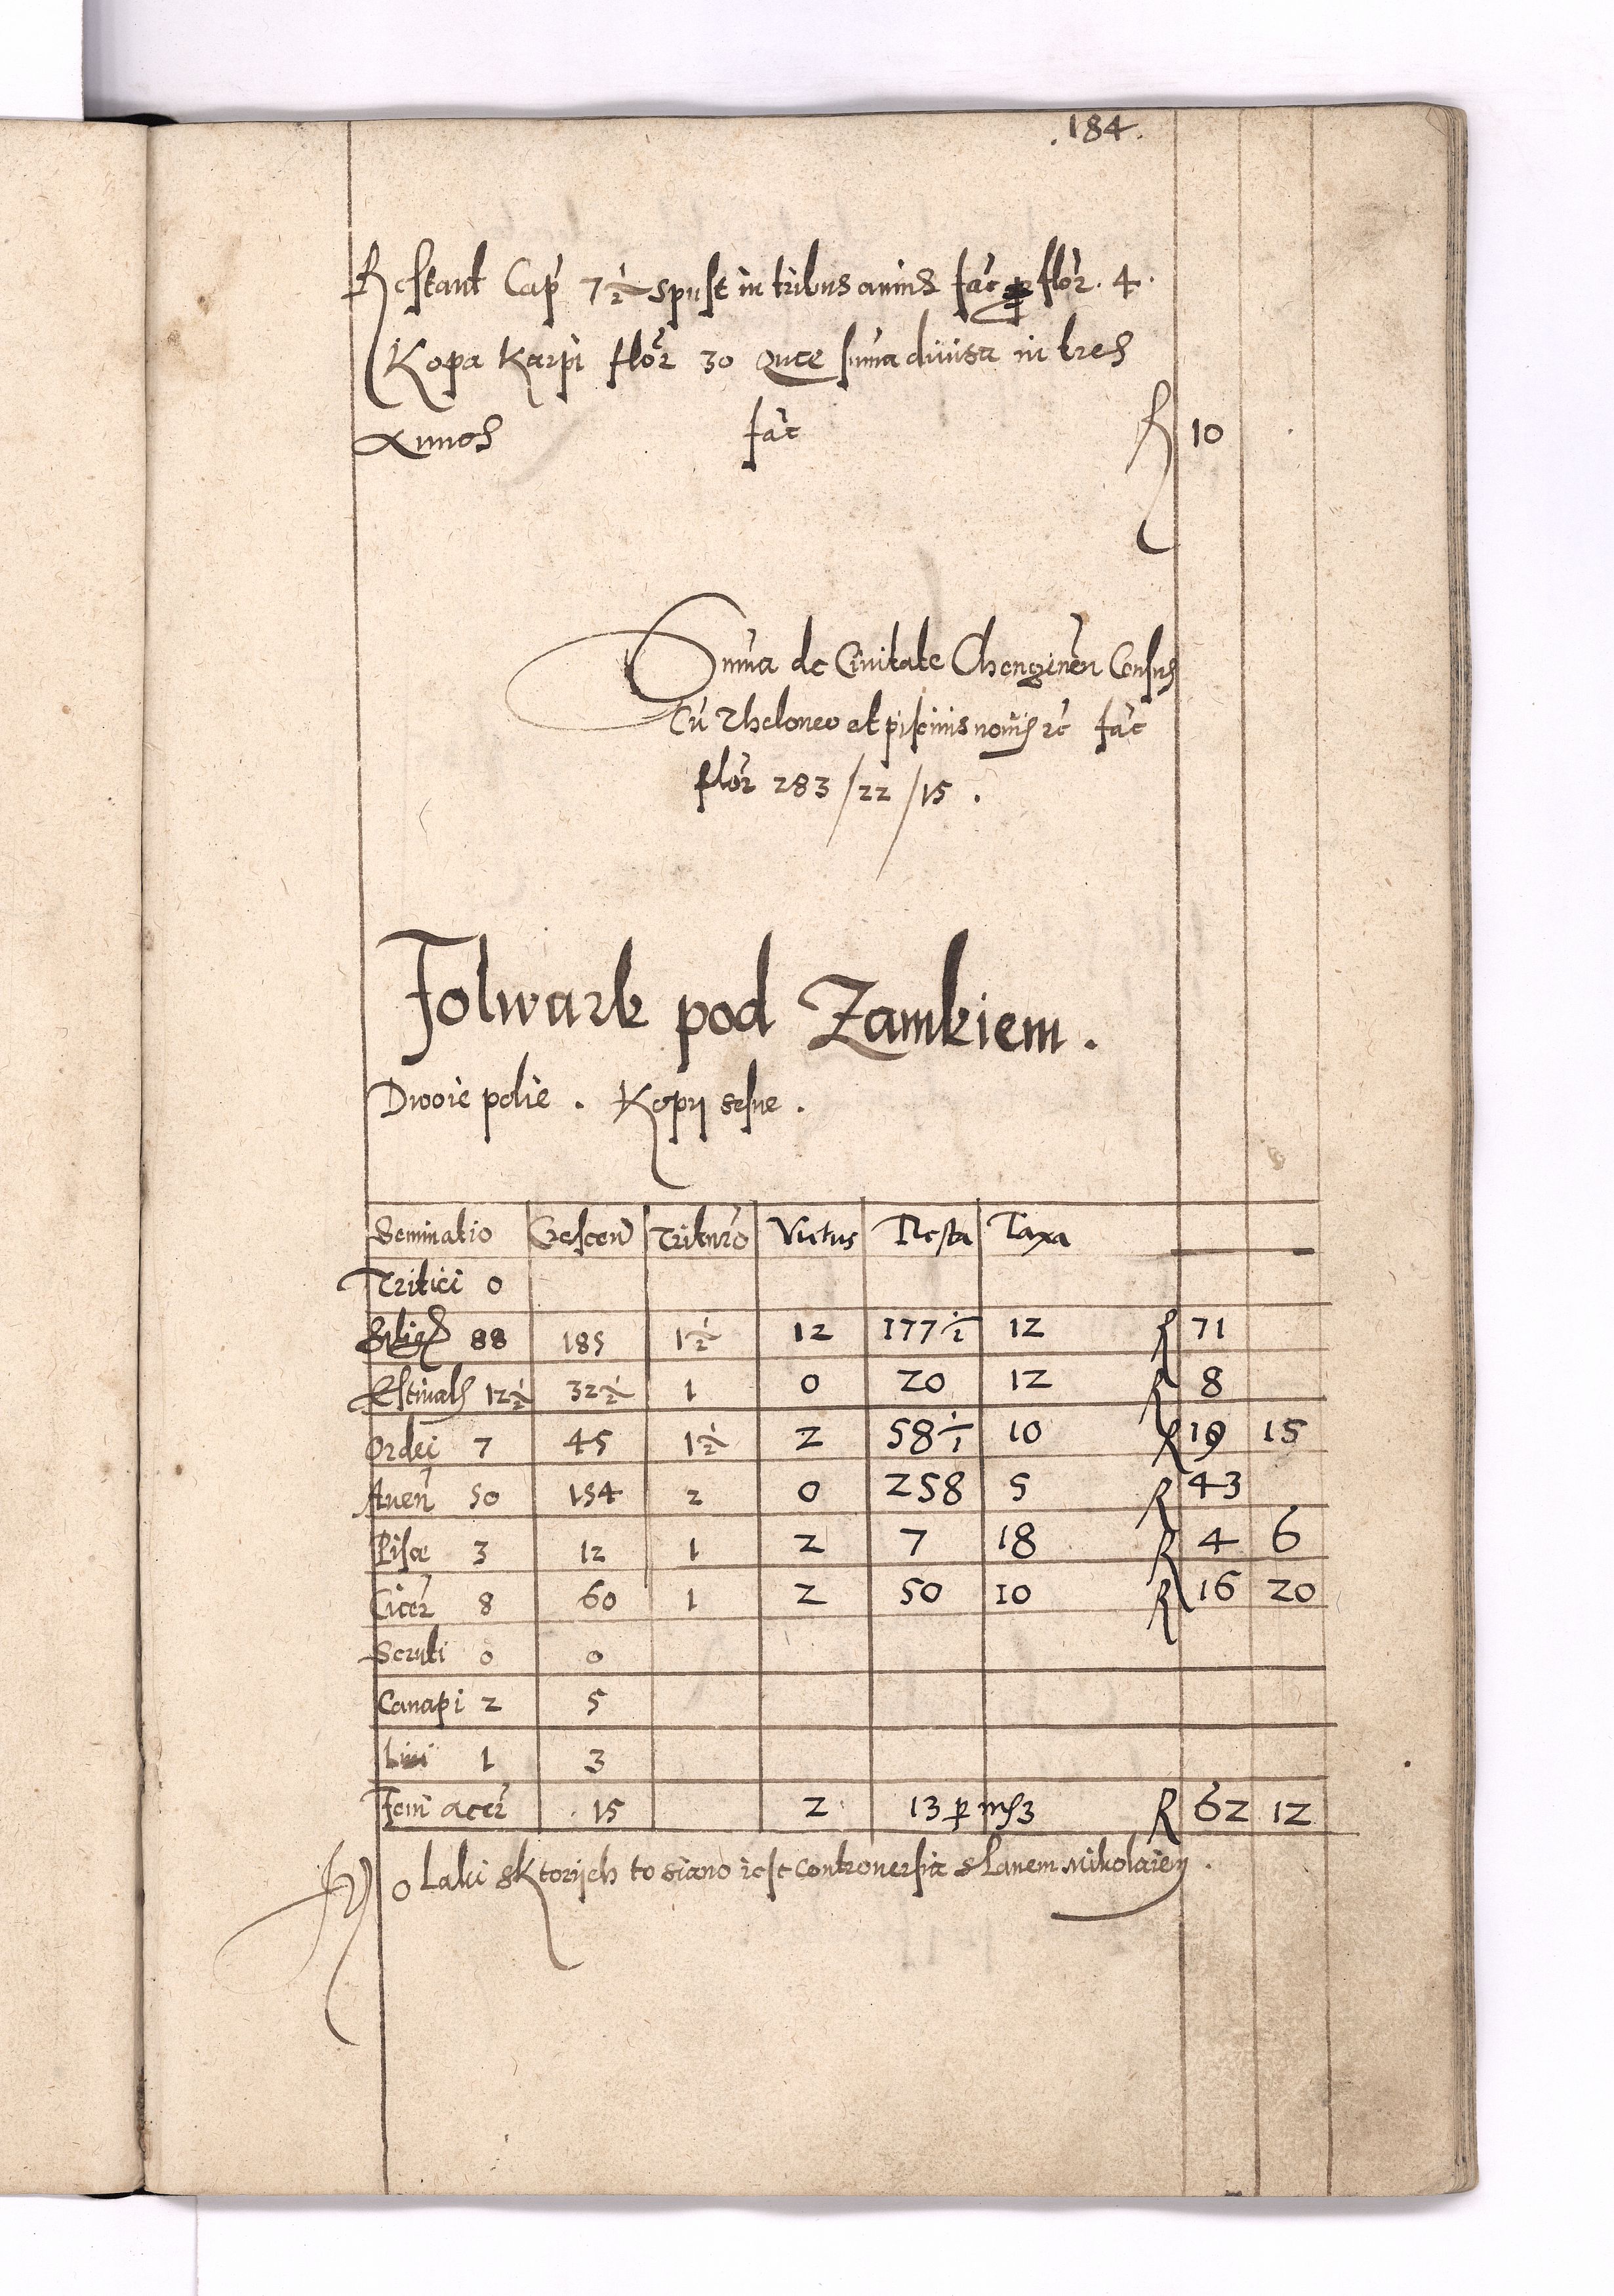 .184.
Restant Cap 7 1/2 spust in tribus annis fac per flor. 4.
Kopa Karpi flor 30 Quae suma diuisa in tres
Annos fac R 10
Suma de Ciuitate Chenginen Census
Cu Theloneo et piscinis nouis etc fac
flor 283/22/15.
Folwark pod Zamkiem.
Dwoie polie. Kopy
Seminatio Crescen Trituro Victus Resta Taxa
Tritici 0
Silig 88 185 1 1/2 12 177 1/2 12 R 71
Estiual 12 1/2 32 1/2 1 0 20 12 R 8
Ordei 7 45 1 1/2 2 58 1/2 10 R 19 15
Auen 50 154 2 0 258 5 R 43
Pisae 3 12 1 2 7 18 R 4 6
Cicer 8 60 1 2 50 10 R 16 20
0 0
Canapi 2 5
Lini 1 3
Feni acer 15 2 13 per R 62 12
o Laki sktorych to siano iest controuersia sPanem Mikolaiem.